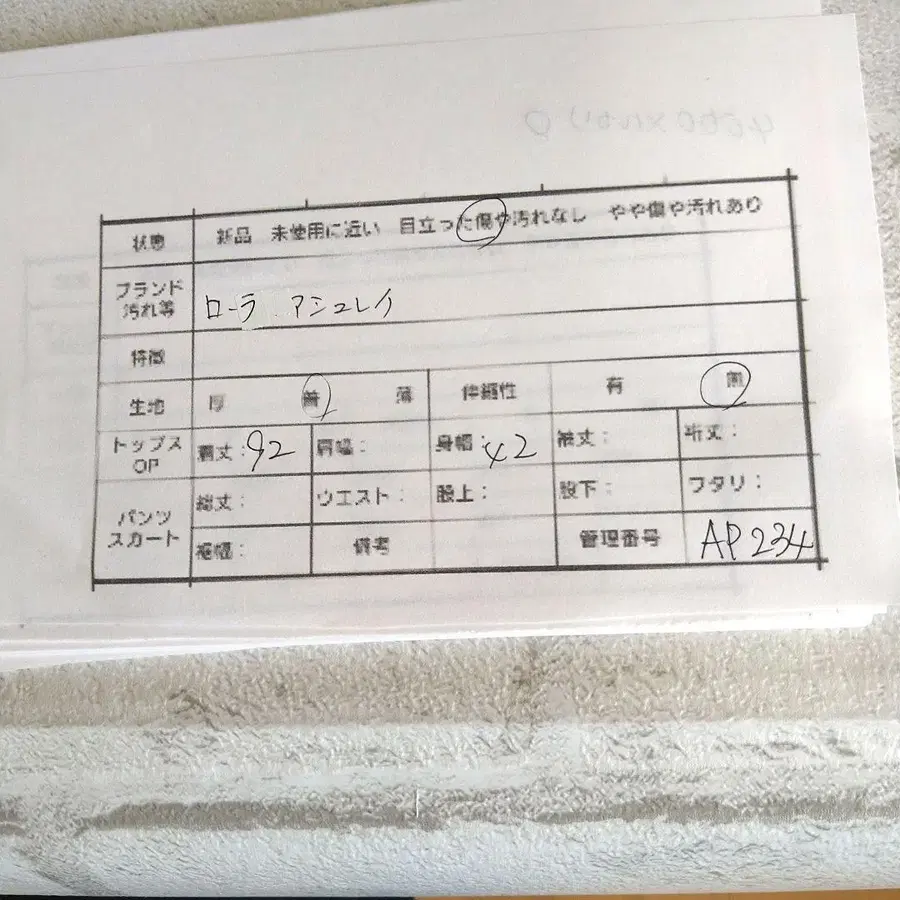 状態 新品 未使用に近い 目立った傷や汚れなし やや傷や汚れあり
ブランド
汚れ等
ローラ アシュレイ
特徴
生地 厚 普 薄 伸縮性 有 無
トップス
OP
着丈:92 肩幅: 身幅:42 袖丈: 裄丈:
パンツ
スカート
総丈: ウエスト: 股上: 股下: ワタリ:
裾幅: 備考 管理番号 AP234